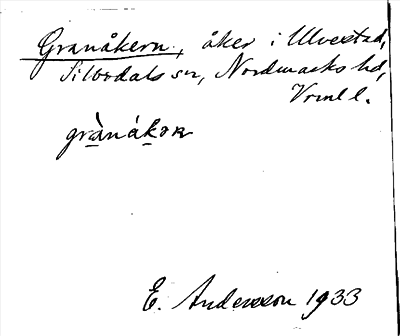 Granåkern, åker i Ulvestad,
Silbodals sn, Nordmarks hd,
Vrml l.
grànákoʀ
E. Andersson 1933